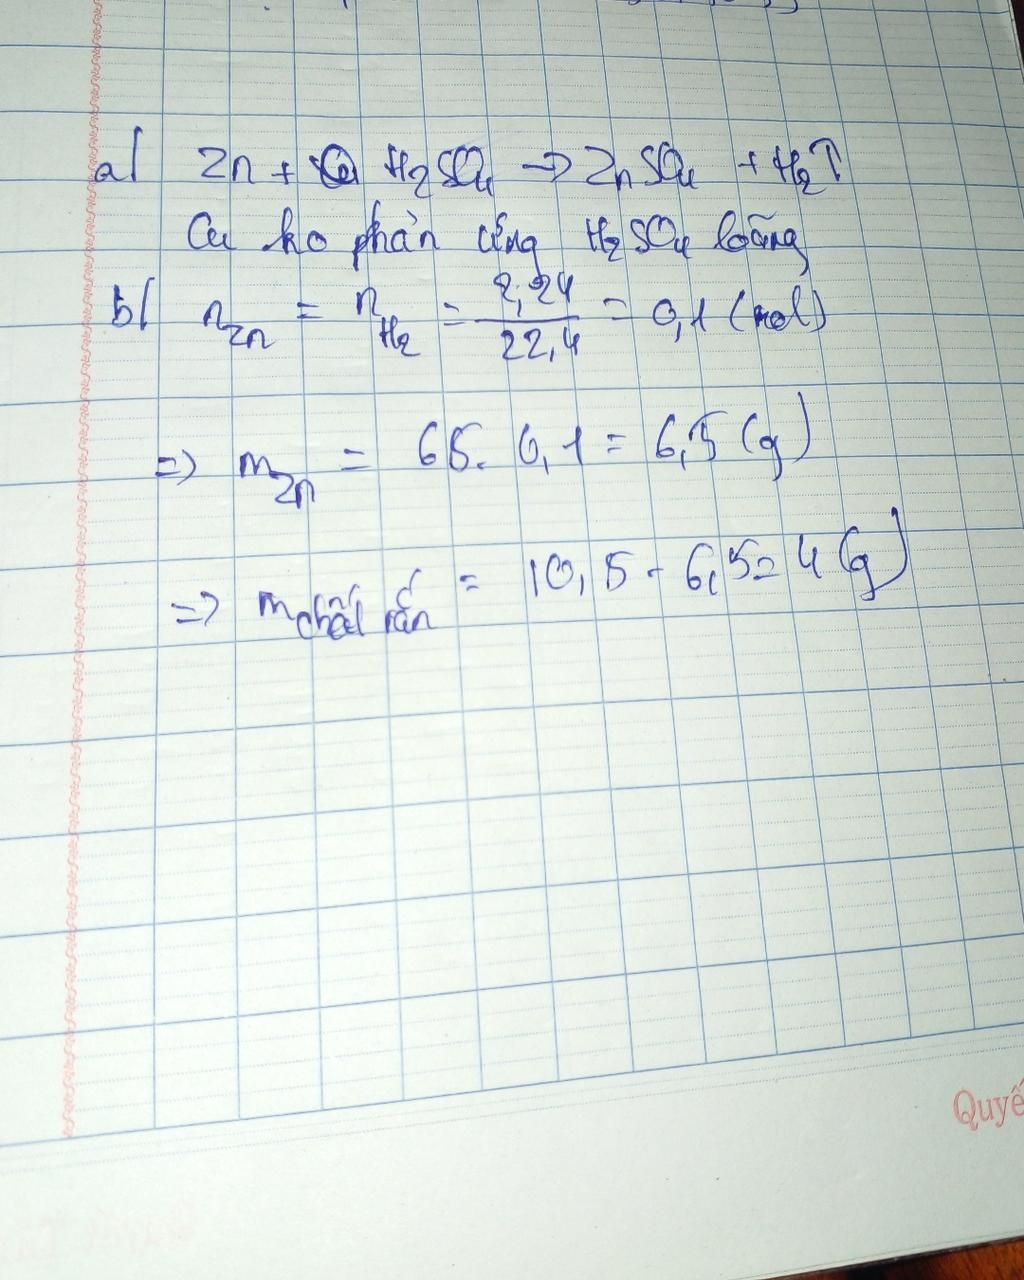 a/ Zn + H₂SO₄ → ZnSO₄ + H₂↑
Cu ko phản ứng H₂SO₄ loãng
b/ n_Zn = n_H₂ = 2,24/22,4 = 0,1 (mol)
=> m_Zn = 65. 0,1 = 6,5 (g)
=> m_chất rắn = 10,5 - 6,5 = 4 (g)
Quyế